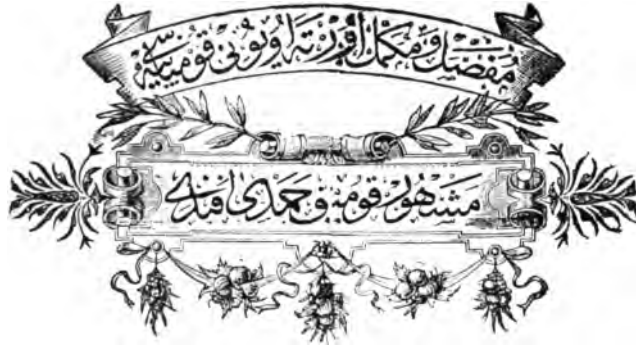 مفصل و مكمل اورته اويونى قومپانيه‌سى
مشهور قوميق حمدى افندى